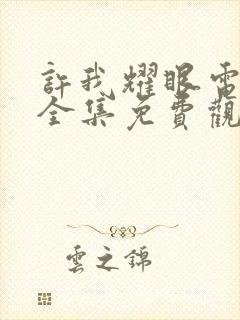 許我耀眼電
全集免費觀
雲之錦